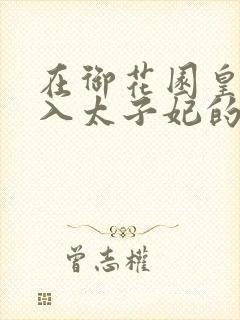 在御花园皇
入太子妃的
曾志權